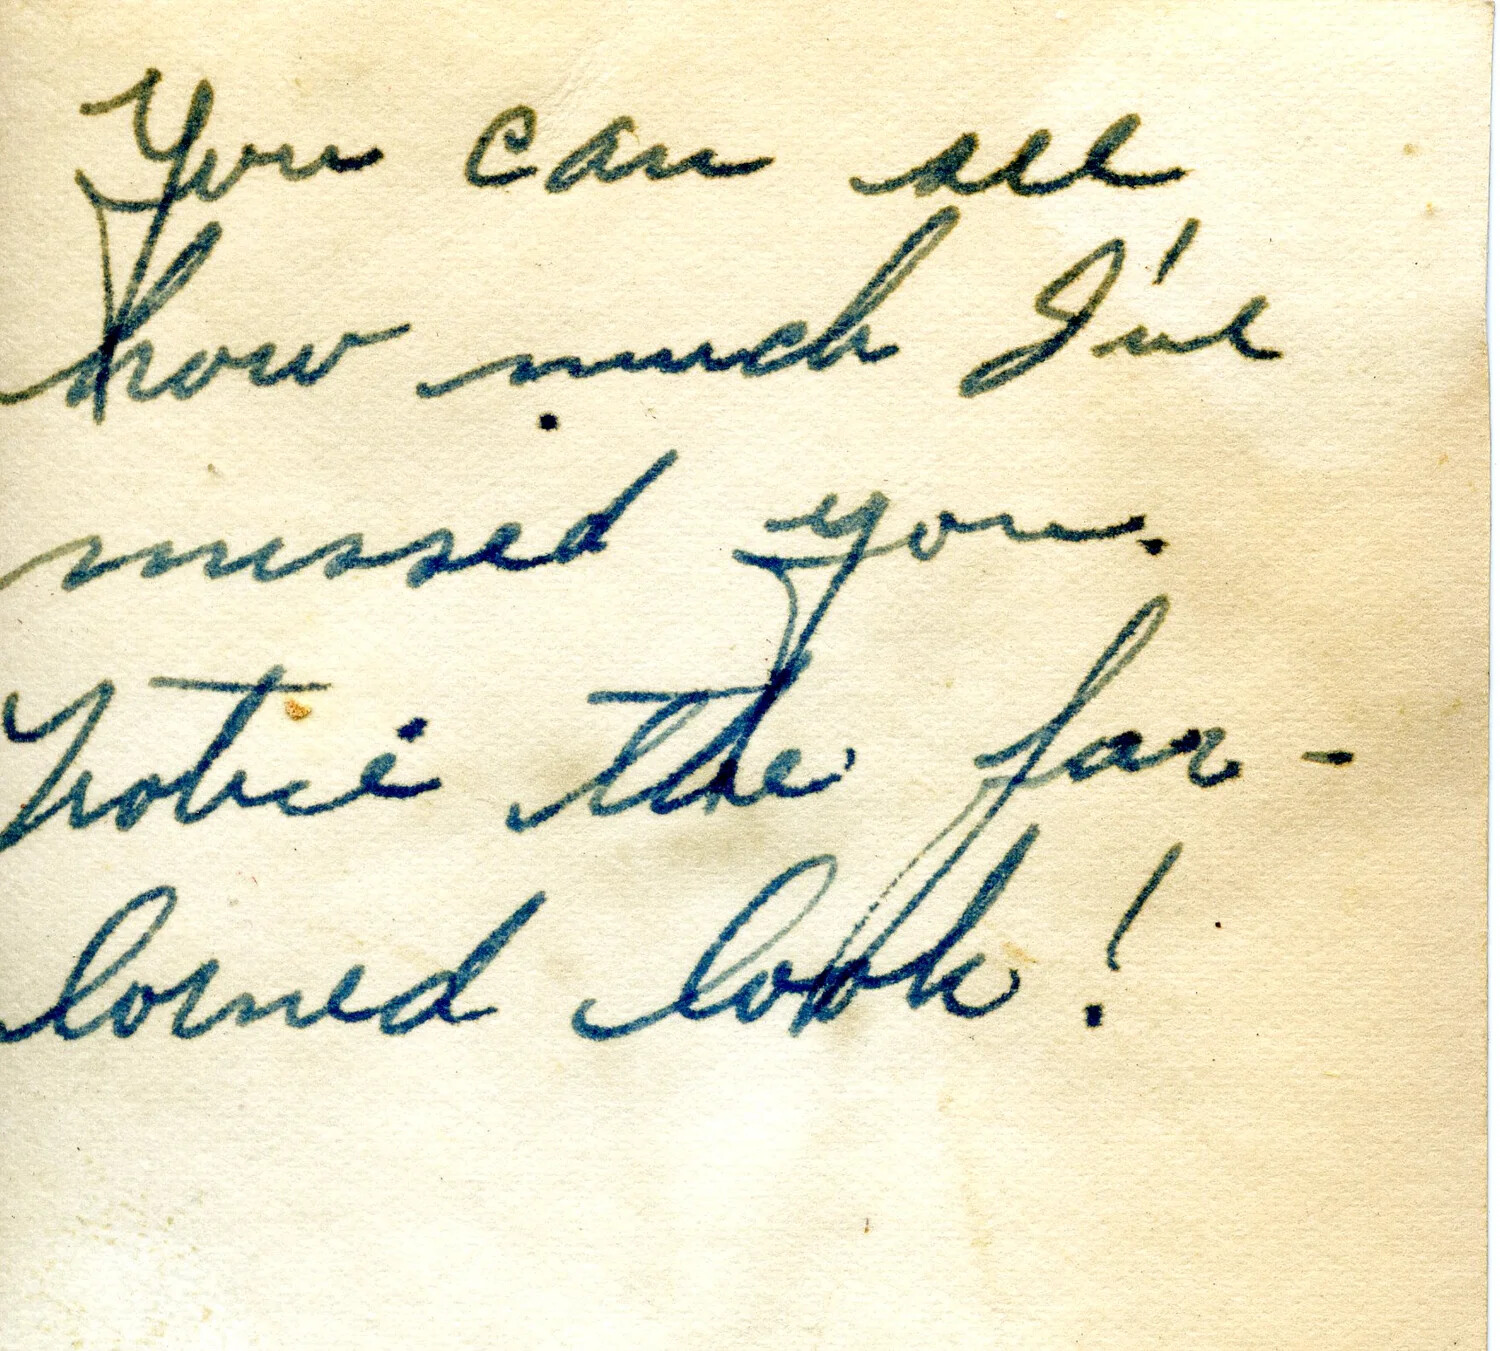 You can see
how much I've
missed you.
Notice the far-
lorned look!